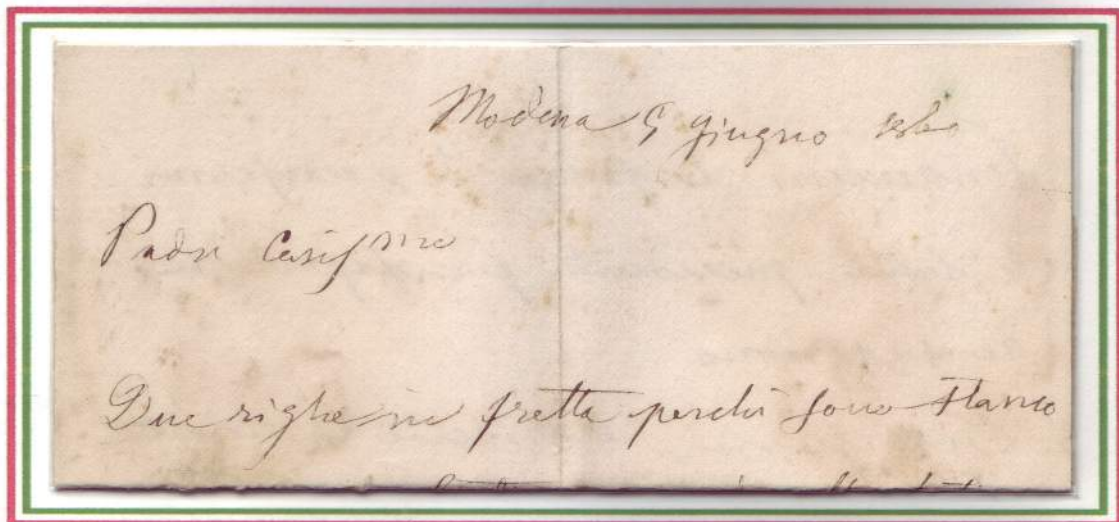 Modena 9 Giugno 1860
Padre Cariss.mo
Due righe in fretta perchè sono stanco